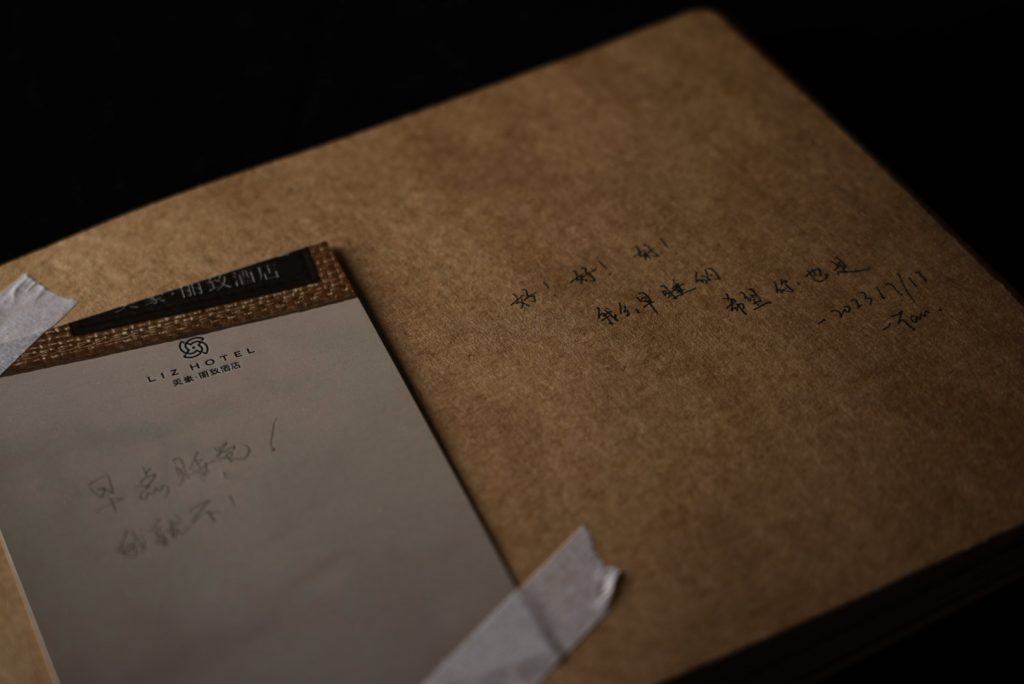 美豪·丽致酒店
LIZ HOTEL
美豪·丽致酒店
早点睡觉！
我就不！
好！好！好！
我会早睡的
希望你也是
-2023.17/11
-Tan.